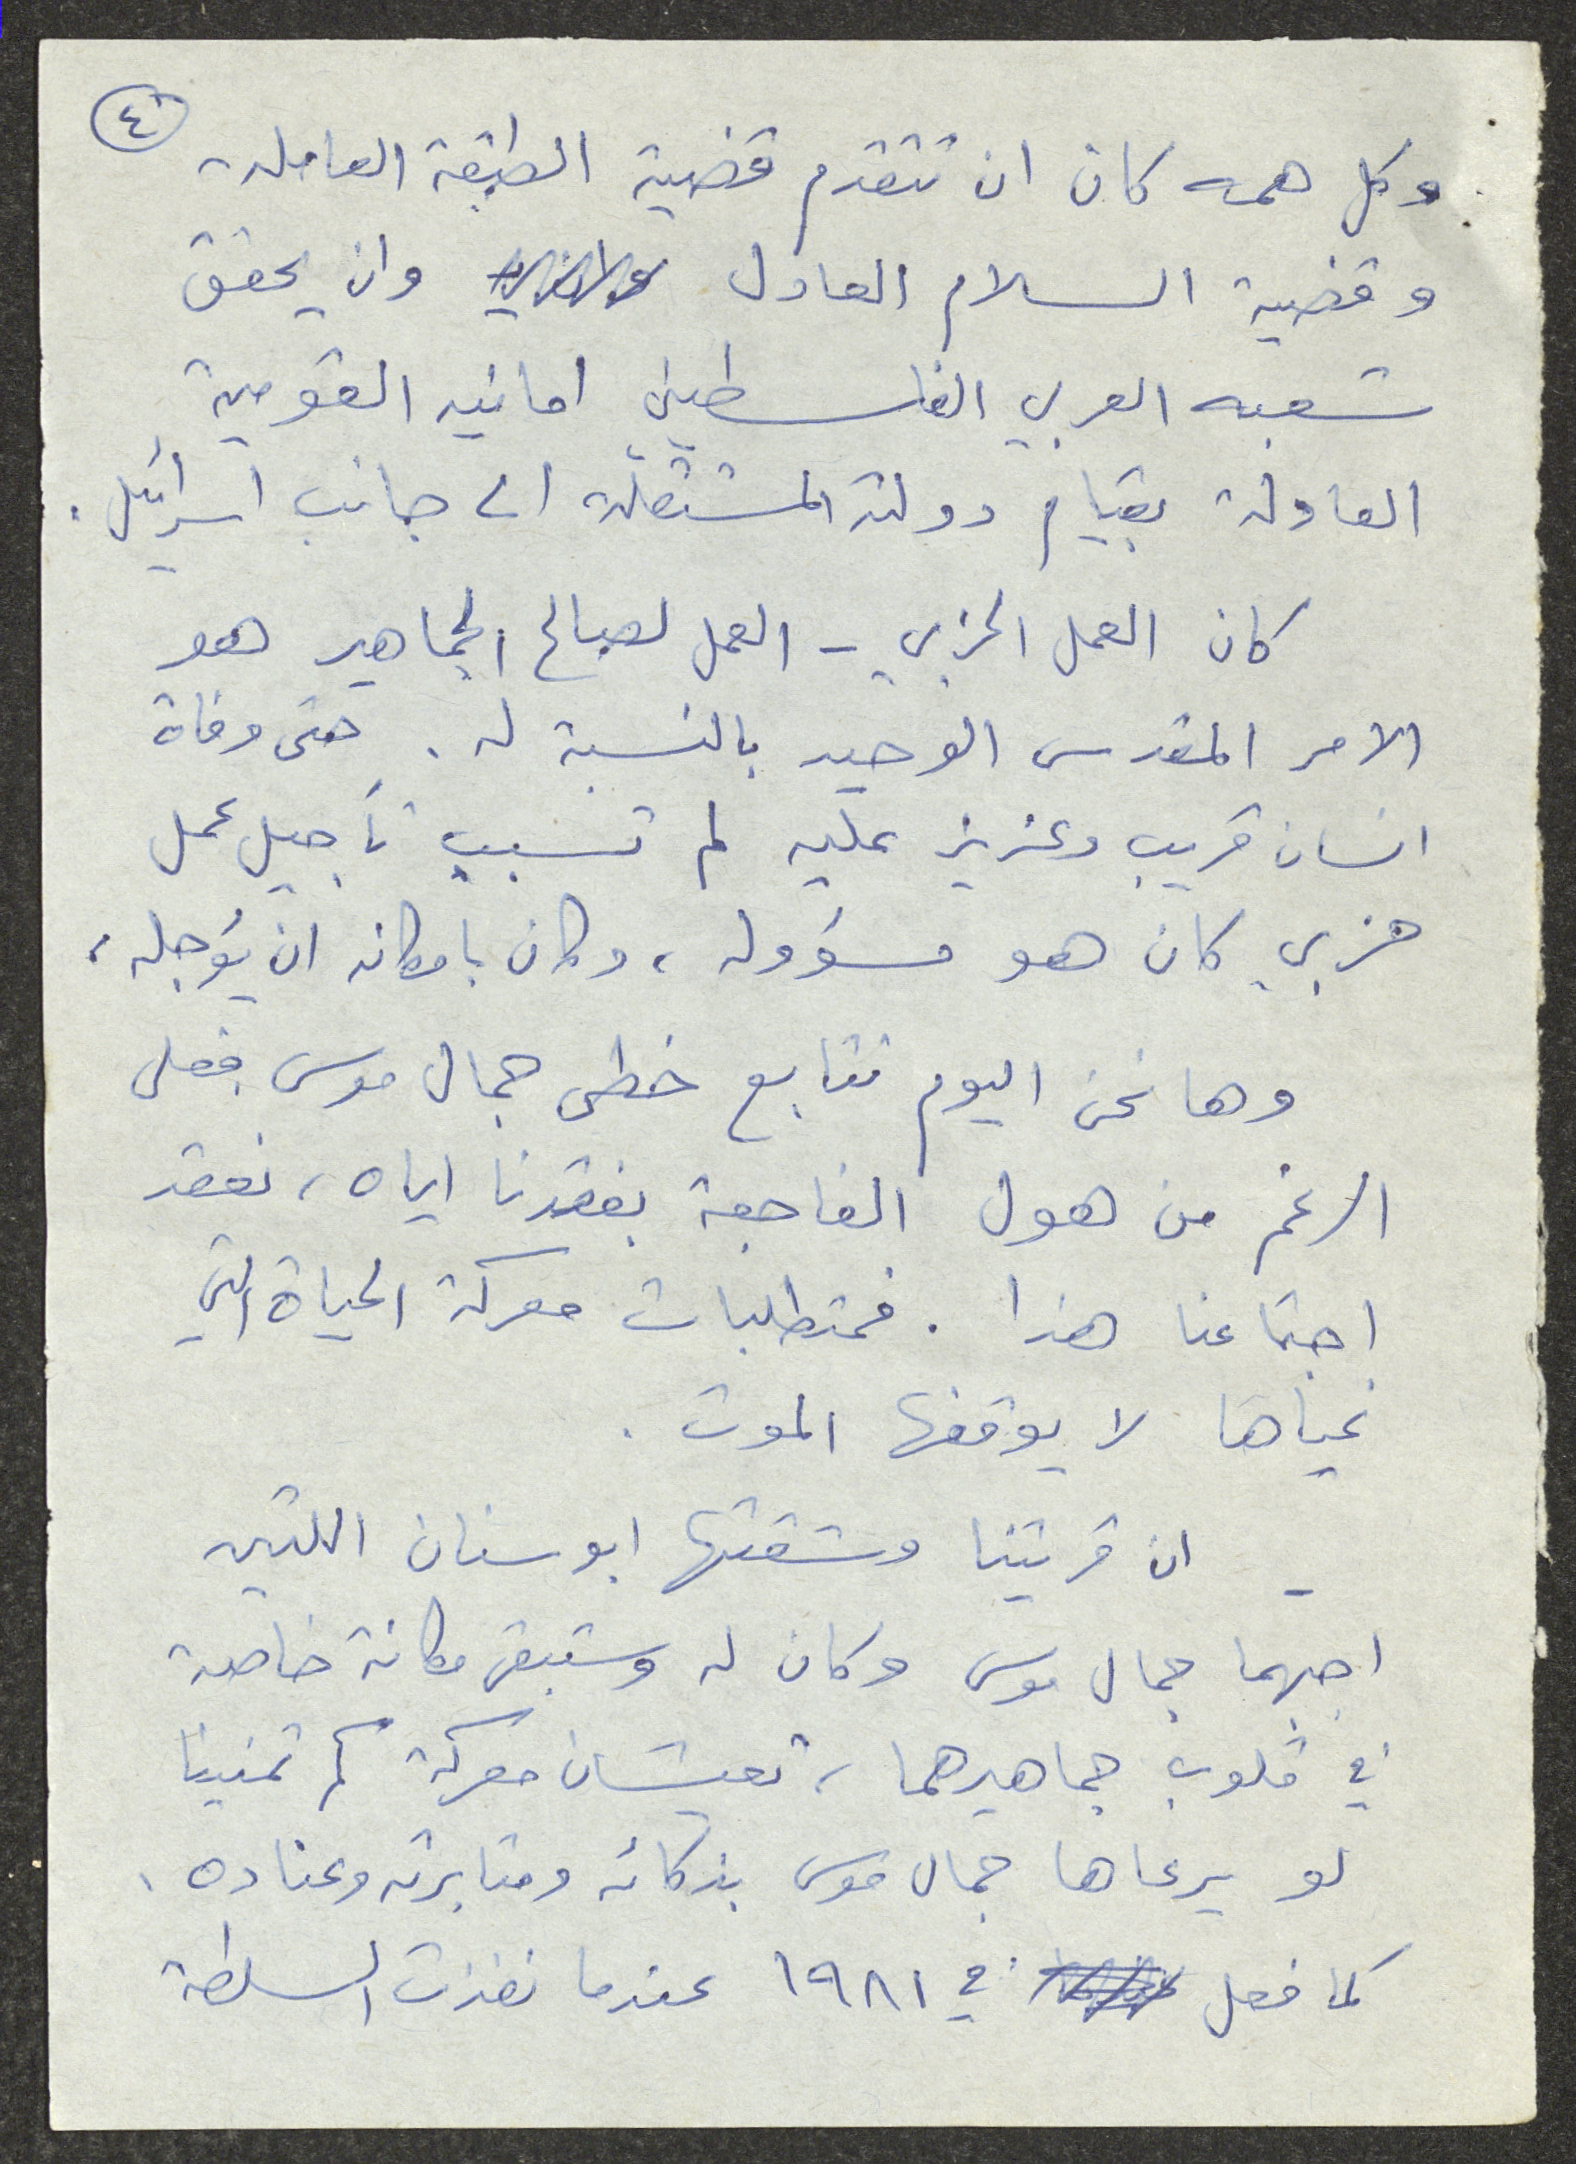 ٤
وكل همه كان ان تتقدم قضية الطبقة العاملة
وقضية السلام العادل وان يحقق
شعبه العربي الفلسطيني امانيه القومية
العادلة بقيام دولته المستقلّة الى جانب اسرائيل.
كان العمل الحزبي - العمل لصالح الجماهير هو
الامر المقدس الوحيد بالنسبة له. حتى وفاة
انسان قريب وعزيز عليه لم تسبب تأجيل عمل
حزبي كان هو مسؤوله، وكان بامكانه ان يؤجله،
وها نحن اليوم نتابع خطى جمال موسى فعلى
الرغم من هول الفاجعة بفقدنا اياه، نعقد
اجتماعنا هذا. فمتطلبات معركة الحياة التي
نحياها لا يوقفها الموت.
- ان قريتنا وشقتها ابو سنان اللتين
احبهما جمال موسى وكان له وستبقى مكانة خاصة
في قلوب جماهيرهما، تعيشان معركة كم تمنينا
لو يرعاها جمال موسى بذكائه ومثابرته وعناده.
كما فعل في ١٩٨١ عندما نفذت السلطة